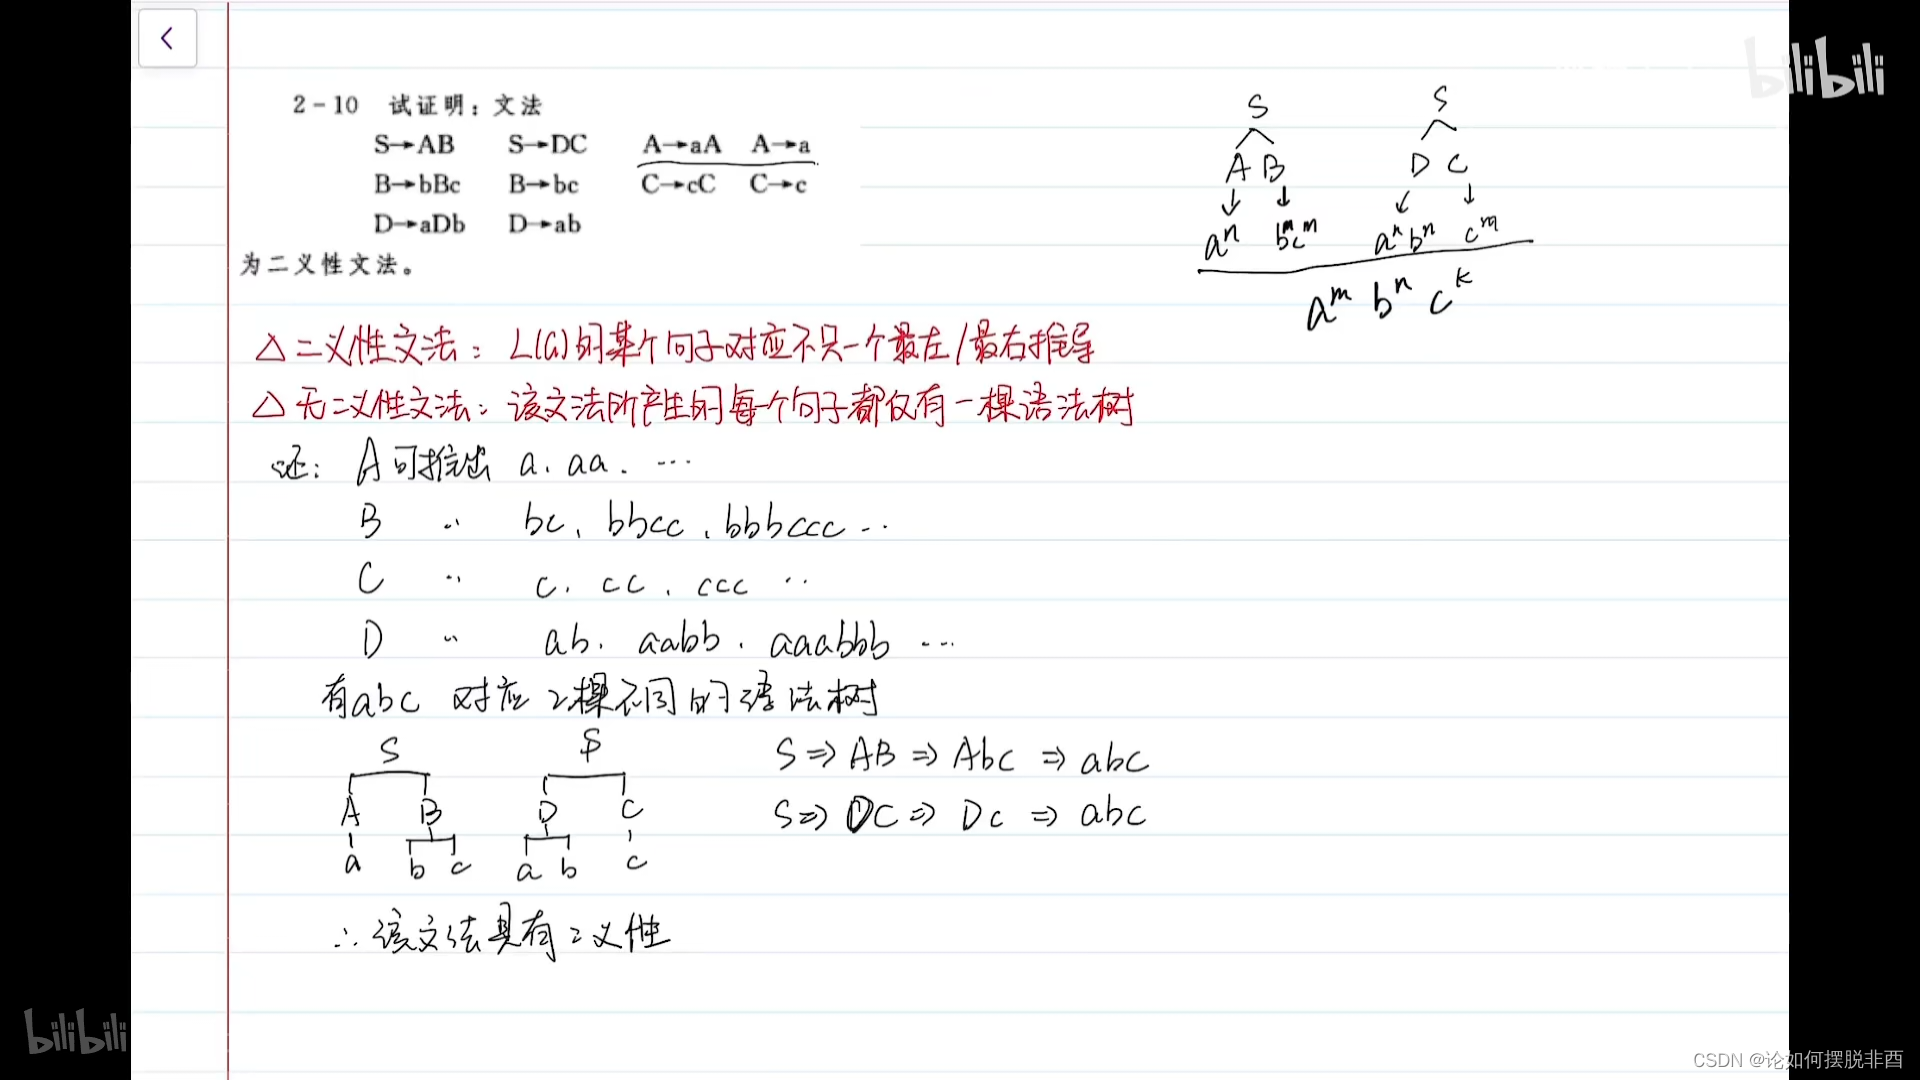 bilibili
2-10 试证明：文法
S→AB S→DC A→aA A→a
B→bBc B→bc C→cC C→c
D→aDb D→ab
为二义性文法。
S S
A B D C
↓ ↓ ↙ ↓
aⁿ bᵐcᵐ aⁿbⁿ cᵐ
aᵐ bⁿ cᵏ
△ 二义性文法：L(G)的某个句子对应不只一个最左/最右推导
△ 无二义性文法：该文法所产生的每个句子都仅有一棵语法树
证： A可推出 a、aa、…
B 〃 bc、bbcc、bbbccc …
C 〃 c、cc、ccc …
D 〃 ab、aabb、aaabbb …
有abc 对应2棵不同的语法树
S S S⇒AB⇒Abc⇒abc
A B D C S⇒DC⇒Dc⇒abc
a b c a b c
∴该文法具有二义性
bilibili
CSDN @论如何摆脱非酉